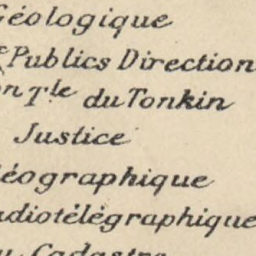 Géologique
Publics Direction
on Tle du Tonkin
Justice
Géographique
Radiotélégraphique
du Cadastre